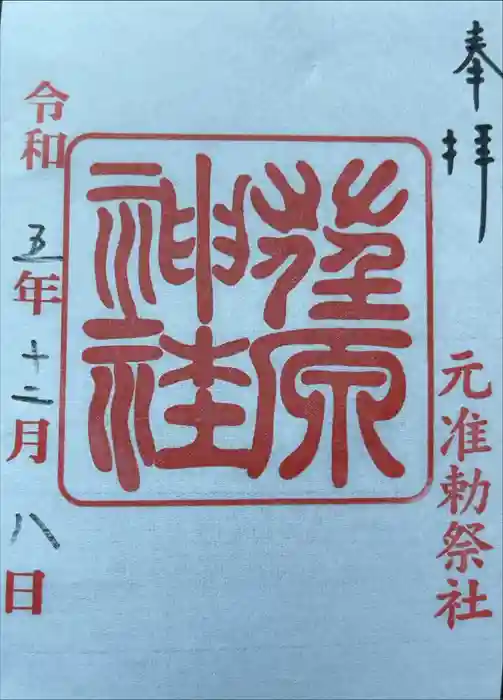 奉拝
元准勅祭社
荏原
神社
令和五年十二月八日